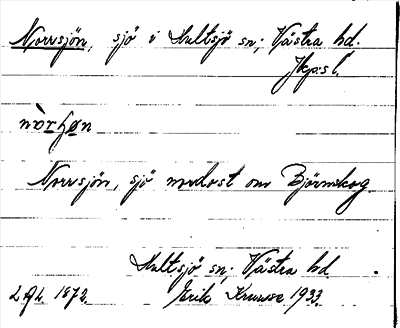 Norrsjön, sjö i Hultsjö sn; Västra hd.
Jkp:s l.
nòrhøn
Norrsjön, sjö nordost om Björnskog.
Hultsjö sn; Västra hd.
1872. Erik Kruuse 1933.